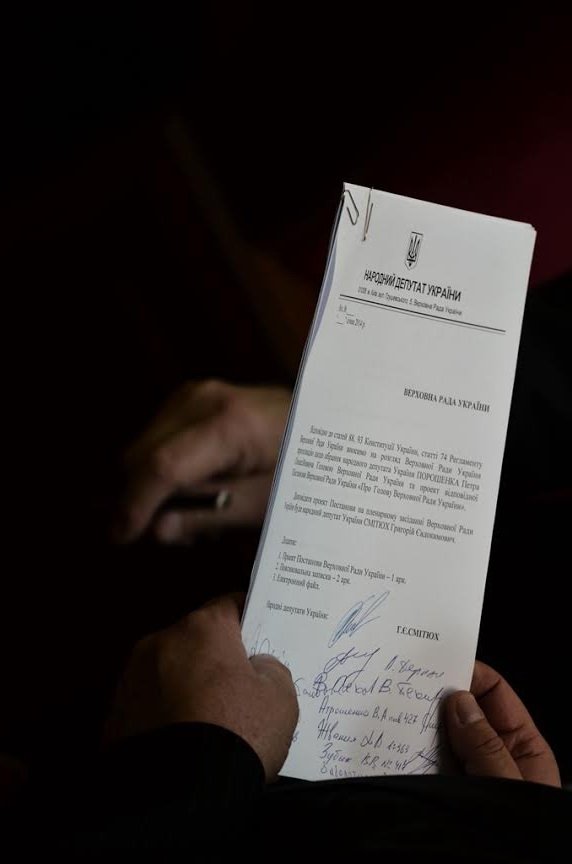 НАРОДНИЙ ДЕПУТАТ УКРАЇНИ
м. Київ, вул. Грушевського, 5, Верховна Рада України
2014 р.
ВЕРХОВНА РАДА УКРАЇНИ
Відповідно до статей 88, 93 Конституції України, статті 74 Регламенту
Верховної Ради України вносимо на розгляд Верховної Ради України
пропозицію щодо обрання народного депутата України ПОРОШЕНКА Петра
Олексійовича Головою Верховної Ради України та проект відповідної
Постанови Верховної Ради України «Про Голову Верховної Ради України».
Доповідати проект Постанови на пленарному засіданні Верховної Ради
України буде народний депутат України СМІТЮХ Григорій Євдокимович.
Додаток:
1. Проект Постанови Верховної Ради України – 1 арк.
2. Пояснювальна записка – 2 арк.
3. Електронний файл.
Народні депутати України:
Г.Є.СМІТЮХ
В.
В.А 427
Жванія Д.В 163
Зубик В.В. №